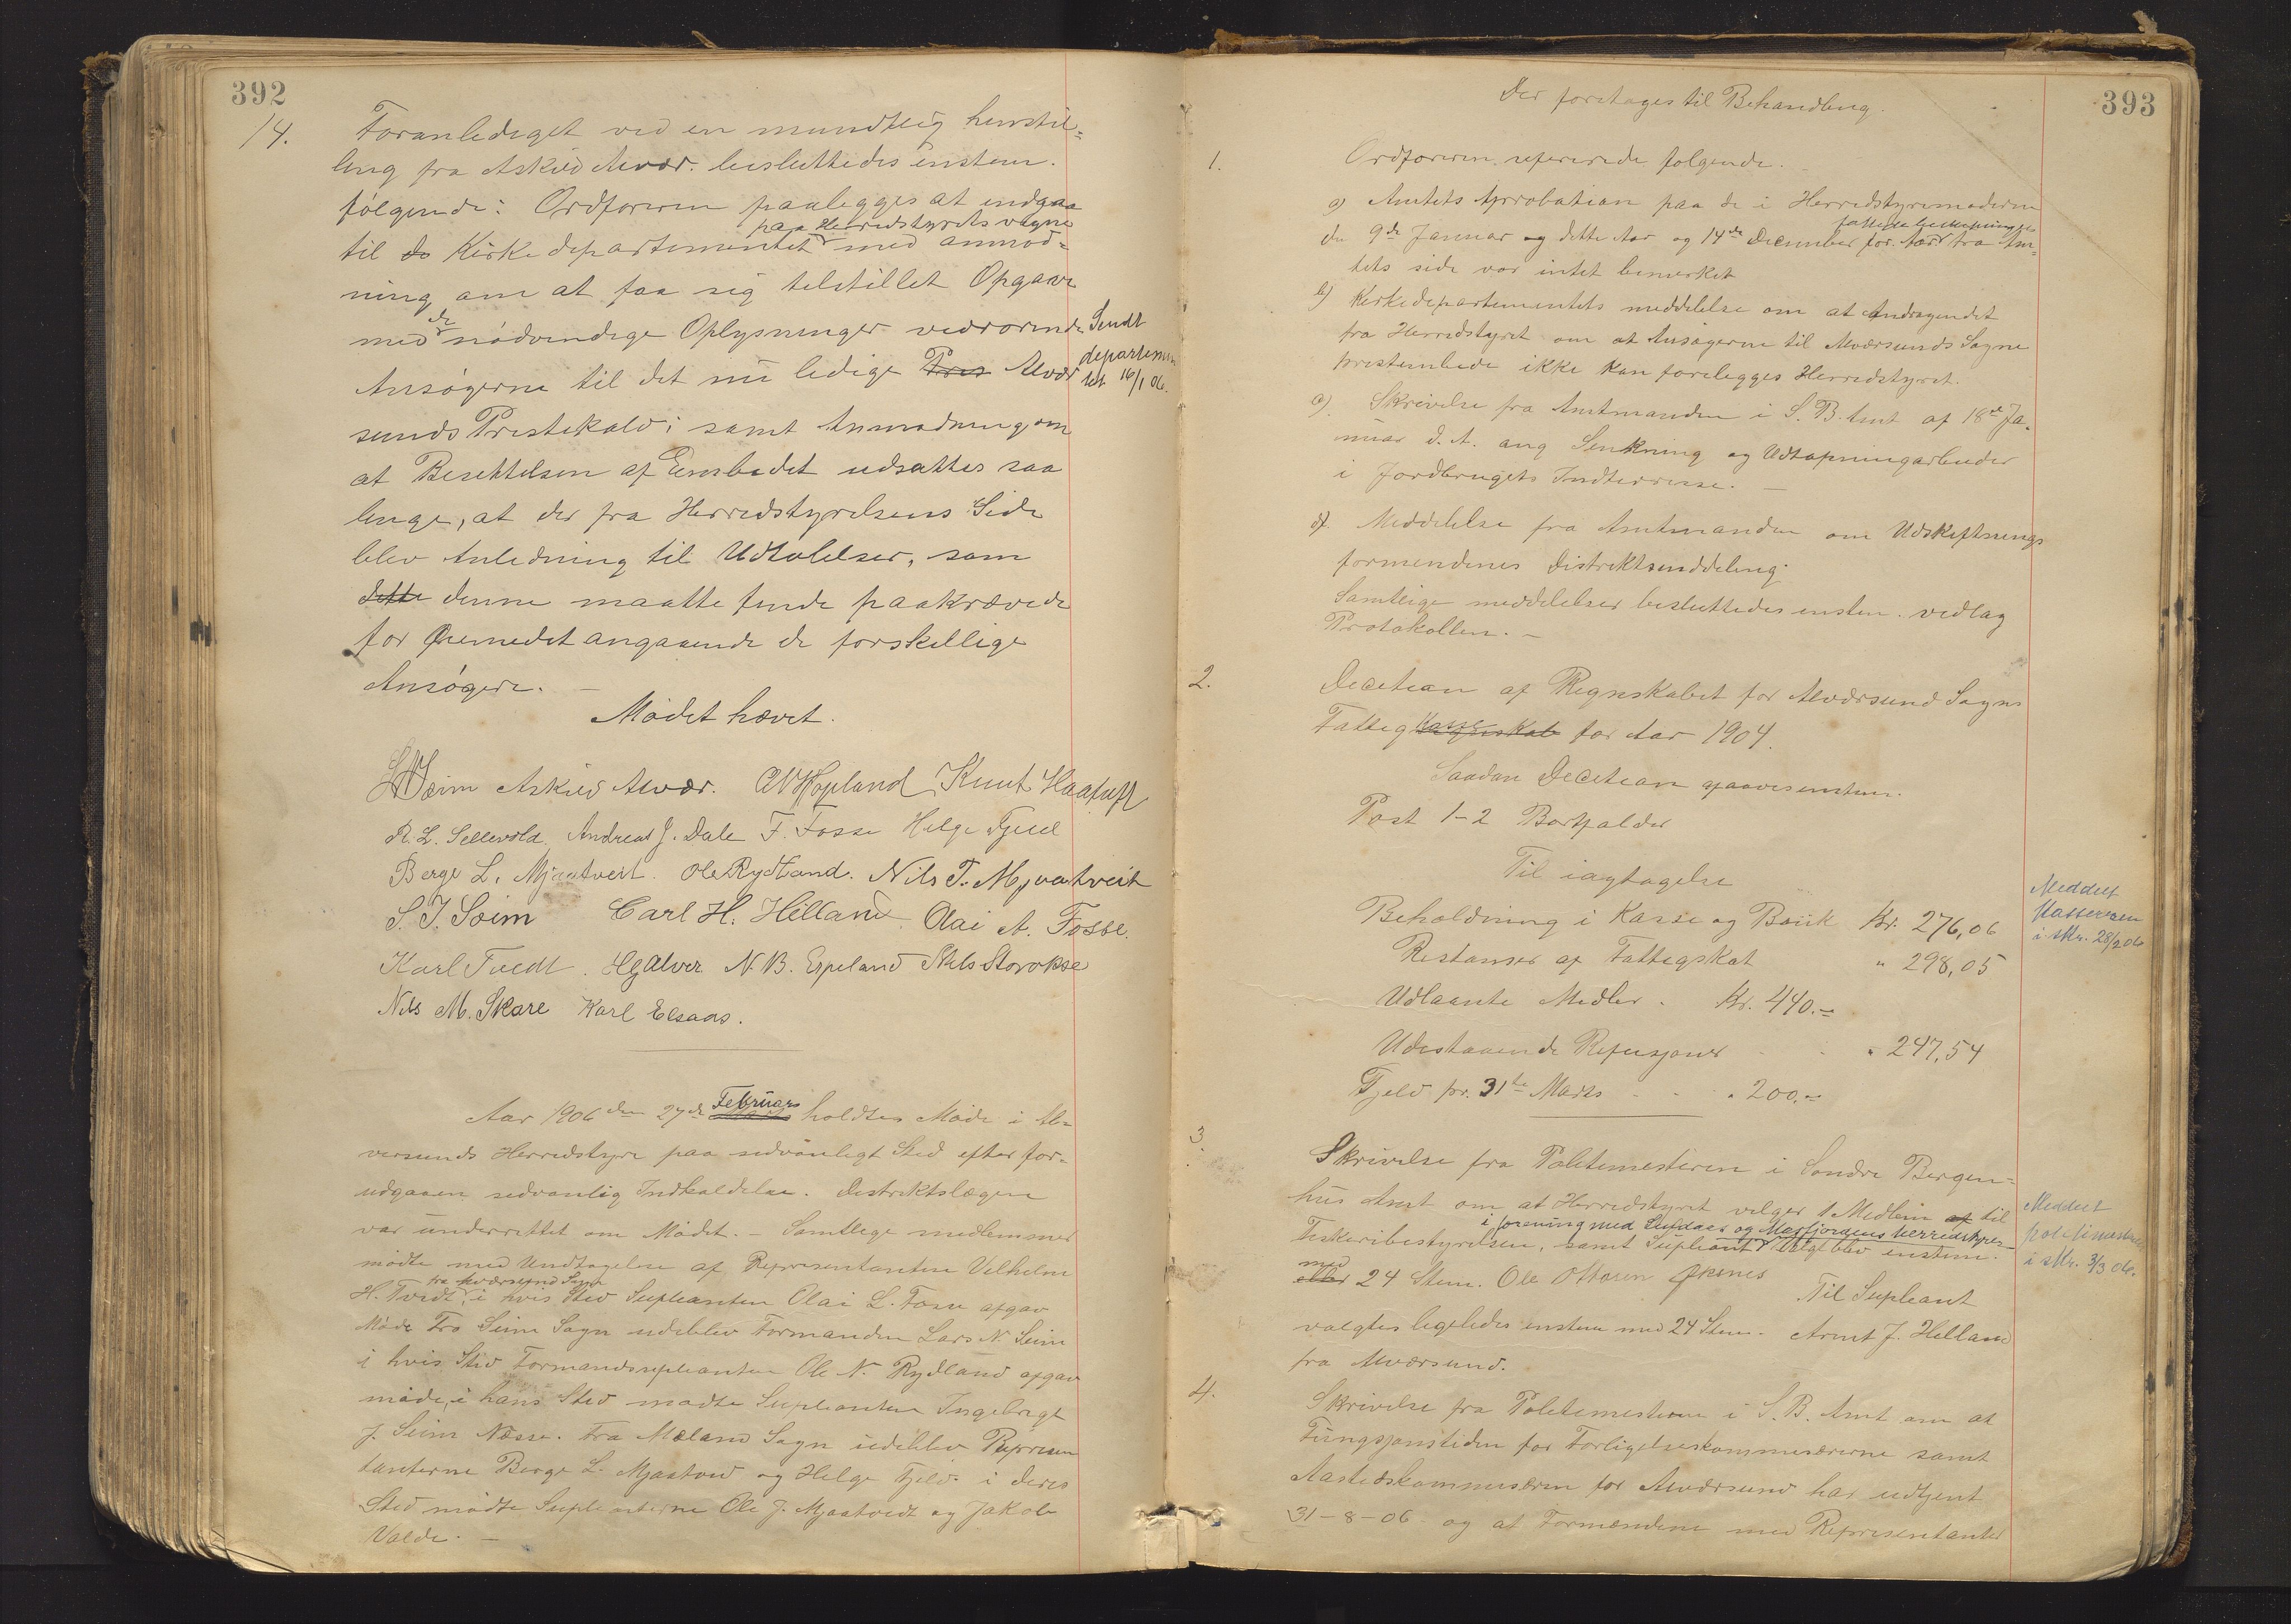 392
14. Foranlediget ved en mundtlig henstil-
ling fra Askild Alvær. besluttedes enstem.
følgende: Ordføreren paalegges at indgaa
paa Herredstyrets vegne
til do Kirkedepartementet med anmod-
ning om at faa sig tilstillet Opgave
de
med nødvendige Oplysninger vedrørende
Ansøgerne til det nu ledige Pres Alvær
Sendt
departemen
tet 16/1 06.
sunds Prestekald; samt Anmodning om
at Besettelsen af Embedet udsattes saa
lenge, at der fra Herredstyrelsens Side
blev Anledning til Udtalelser, som
dette denne maatte finde paakrævede
for Øiemedet angaaende de forskellige
Ansøgere. –
Mødet hævet.
Askild Alvær. Knut Haatuft
R. L. Sellevold, Andreas J. Dale F. Fosse Helge Fjeld
Berge L. Mjaatveit. Ole Rydland. Nils T. Mjaatveit
S. J. Seim Carl H. Helland Olai A. Fosse.
Karl Tvedt. HgAlver N. B. Espeland Nils Storokse
Nils M. Skare Karl Elsaas.
Aar 1906 den 27de Februar holdtes Møde i Al-
versunds Herredstyre paa sedvanligt Sted efter for-
udgaaen sedvanlig Indkaldelse. Distriktslægen
var underrettet om Mødet. – Samtlege medlemmer
mødte med Undtagelse af Representanten Vilhelm
fra Alværsund Sogn
H. Tvedt, i hvis Sted Supleanten Olai L. Fosse afgav
Møde Fra Seim Sogn udeblev Formanden Lars N. Seim
i hvis Sted Formandssupleanten Ole N. Rydland afgav
møde, i hans Sted mødte Supleanten Ingebrigt
J. Seim Næsse. Fra Mæland Sogn udeblev Represen
tanterne Berge L. Mjaatved og Helge Fjeld i deres
Sted mødte Supleanterne Ole J. Mjaatvedt og Jakob
Valde. –
393
Der foretoges til Behandling.
1. Ordføreren refererede følgende.
a) Amtets Aprrobation paa de i Herredstyremøderne
fattede beslutninger
de 9de Januar og dette Aar og 14de December for. Aar fra Am-
tets side var intet bemerket
b) Kirkedepartementets meddelelse om at Andragendet
fra Herredstyret om at Ansøgerne til Alværsunds Sogne
presteembede ikke kan forelegges Herredstyret.
c). Skrivelse fra Amtmanden i S. B. Amt af 18de Ja-
nuar d. A. ang Senkning og Udtapningarbeider
i Jordbrugets Indterresse. –
d). Meddelelse fra Amtmanden om Udskiftnings
formendenes Distriktsinddeling.
Samtlige meddelelser besluttedes enstem. vedlag
Protokollen. –
2. Decetion af Regnskabet for Alværsund Sogns
Kasse
Fattigregnskab for Aar 1904.
Saadan Decetion afgaves enstem.
Post 1-2 Bortfalder
Til iagtagelse
Beholdning i Kasse og Bank Kr. 276,06
Meddelt
Kassereren
i skr. 28/2 06
Restanser af Fattigskat " 298,05
Udlaante Midler. Kr. 440.–
Udestaaende Refusjoner " 247,54
Gjeld pr. 31te Marts " 200.–
3. Skrivelse fra Politimesteren i Søndre Bergen-
hus Amt om at Herredstyret velger 1 Medlem af til
i forening med Lindaas og Masfjordens herredstyrer
Fiskeribestyrelsen, samt Supleant Valgt blev enstem.
Meddelt
politimesteren
i skr. 3/3 06.
med
eller 24 Stem. Ole Ottesen Øksnes Til Supleant
valgtes ligeledes enstem med 24 Stem. Arnt J. Helland
fra Alværsund.
4. Skrivelse fra Politimesteren i S. B. Amt om at
Fungsjonstiden for Forligelseskommisærerne samt
Aastedskommisæren for Alværsund har udtjent
31-8-06 og at Formændene med Representanter